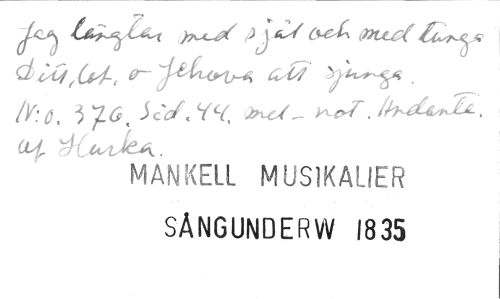 Jag längtar med själ och med tunga
Ditt lof, o Jehova att sjunga.
N:o. 376. Sid. 44. mel - not. Andante.
af Hurka.
MANKELL MUSIKALIER
SÅNGUNDERW 1835